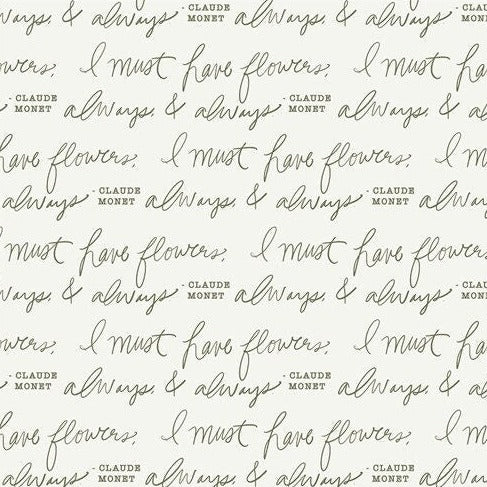 ays, & always - CLAUDE MONET always, & always - CLAUDE MONET
owers, I must have flowers, I must have
- CLAUDE MONET always, & always - CLAUDE MONET always, &
have flowers, I must have flowers, I m
always - CLAUDE MONET always, & always - CLAUDE MONET always
I must have flowers, I must have
ways, & always - CLAUDE MONET always, & always - CLAU MONE
owers, I must have flowers, I must have
- CLAUDE MONET always, & always - CLAUDE MONET always, &
have flowers, I must have flowers, I m
always - CLAUDE MONET always, & always - CLAUDE MONET always